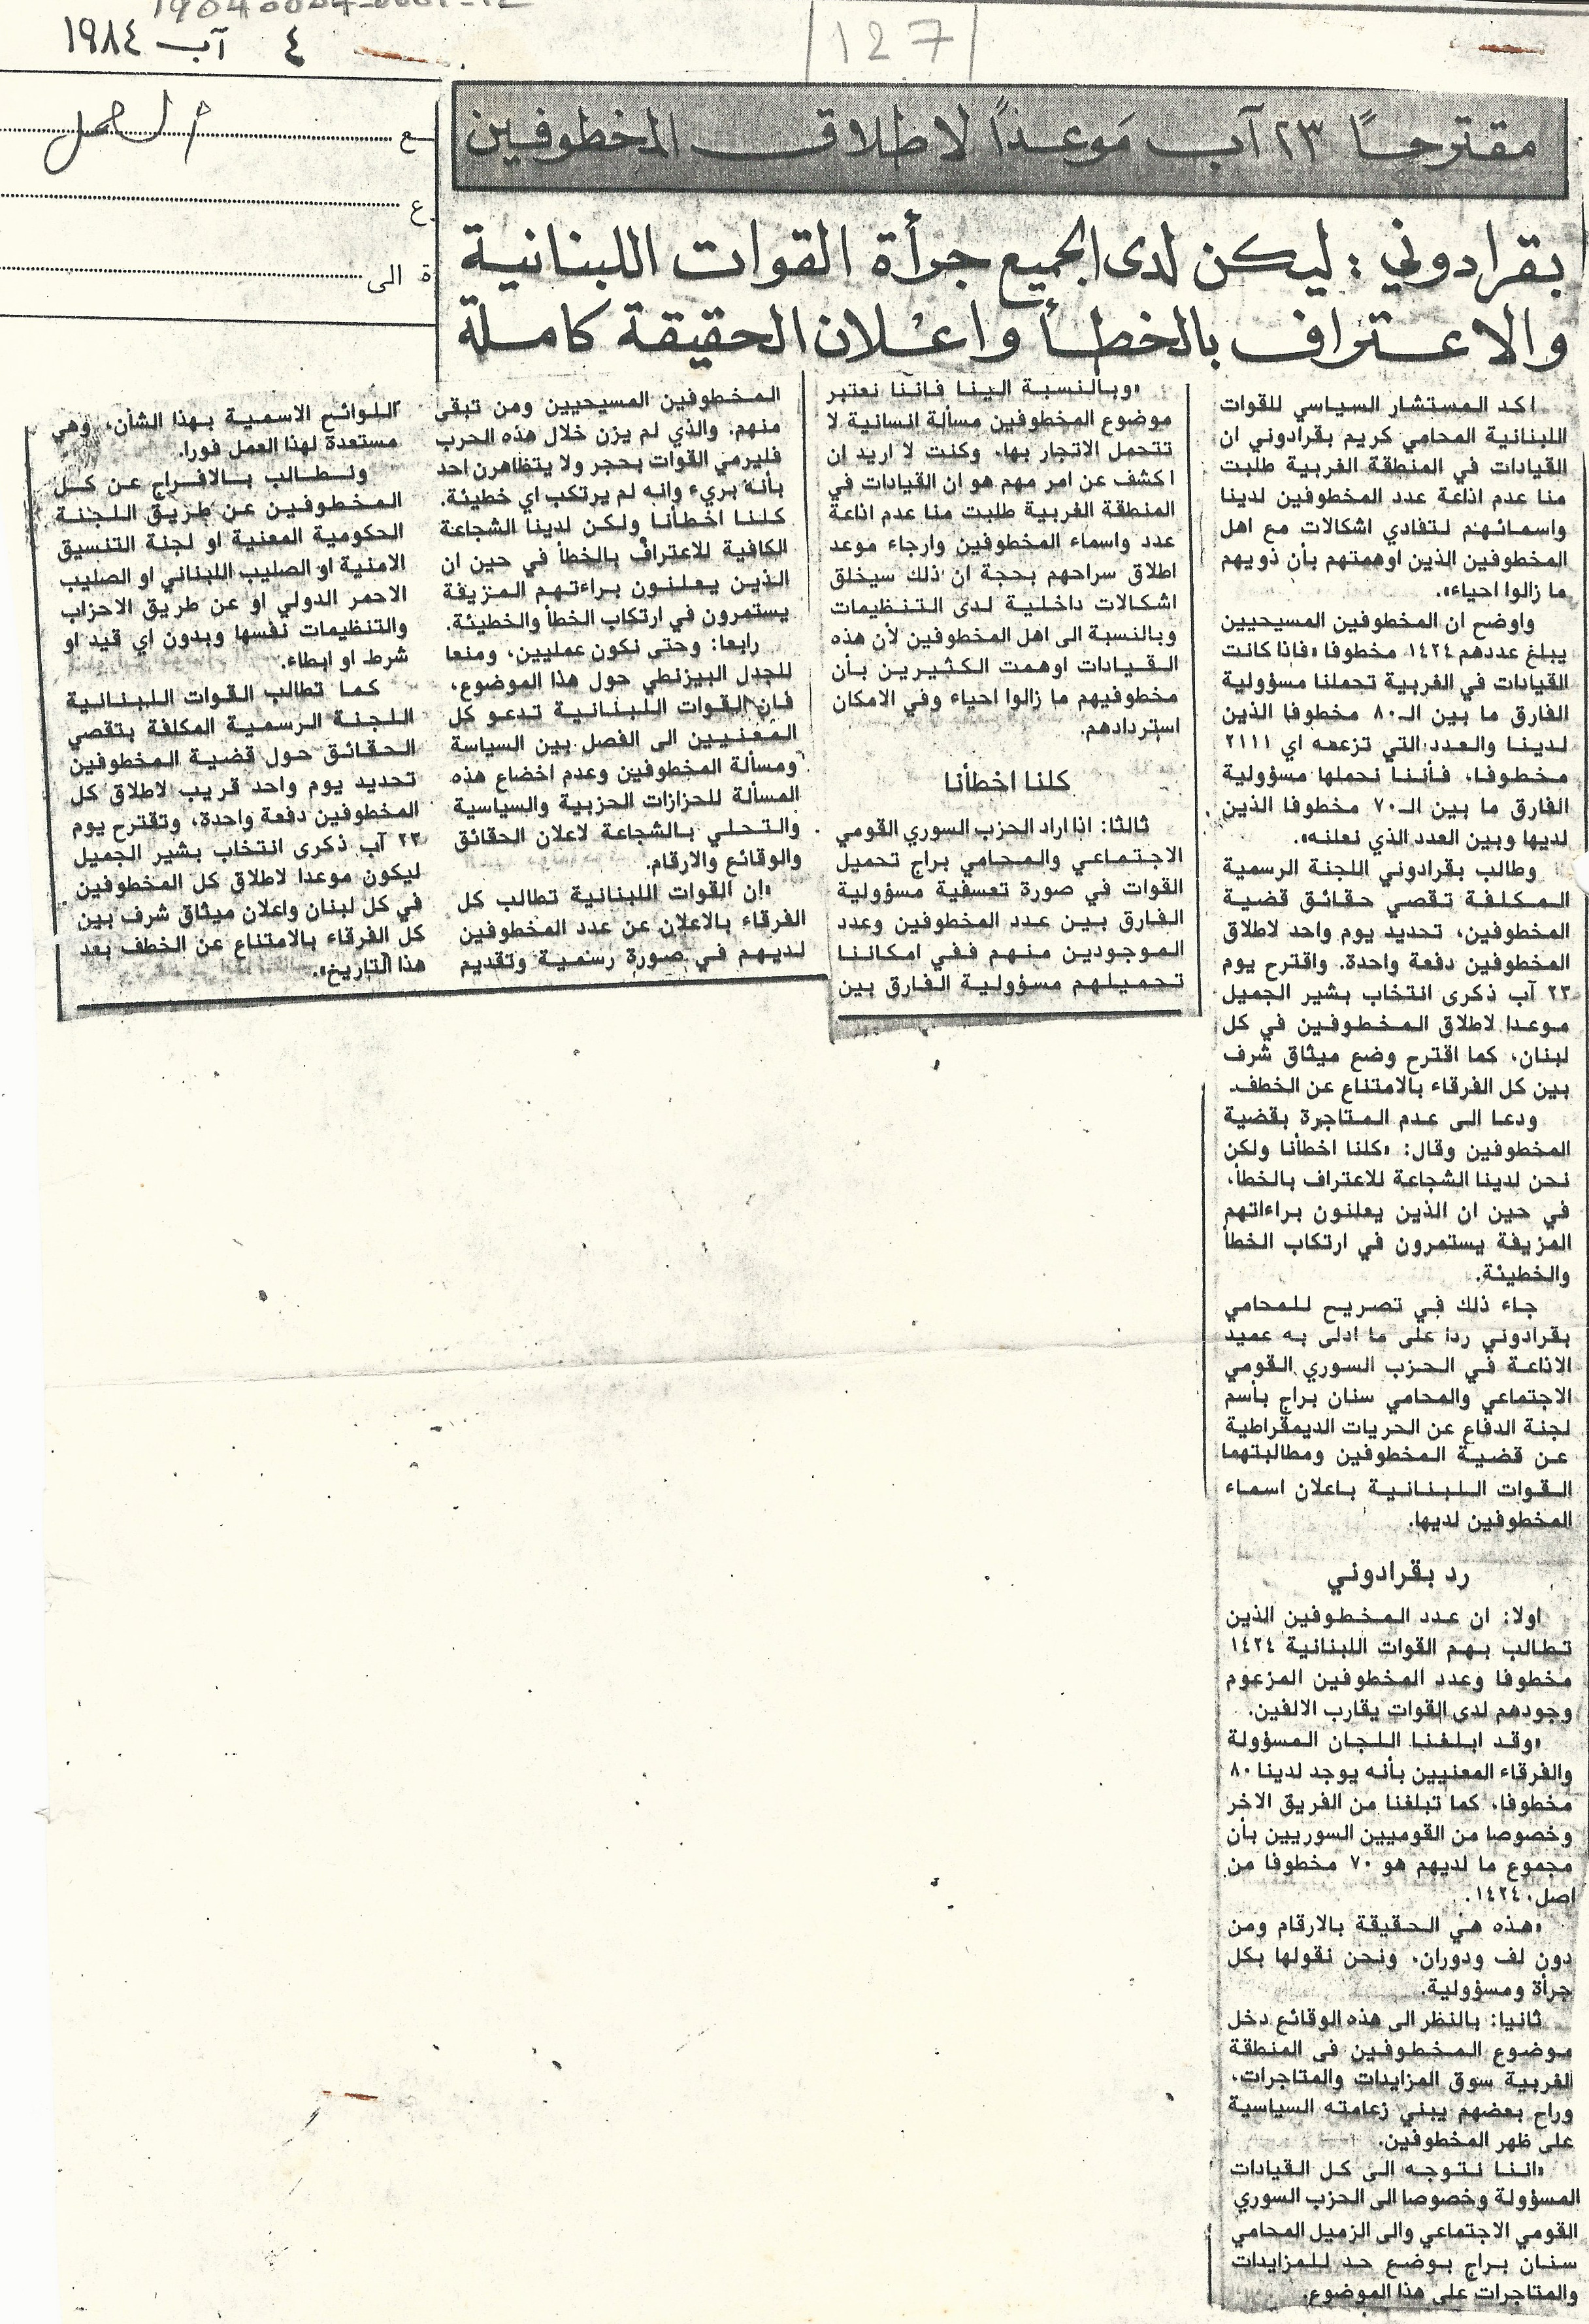 ٤ آب ١٩٨٤
127
ـع
ع
ة الى
مقترحـًا ٢٣ آب مَوعـدًا لاطلاق المخطوفين
بقرادوني : ليكن لدى الجميع جرأة القوات اللبنانية
والاعتراف بالخطأ واعْلان الحقيقة كاملة
اكد المستشار السياسي للقوات
اللبنانية المحامي كريم بقرادوني ان
القيادات في المنطقة الغربية طلبت
منا عدم اذاعة عدد المخطوفين لدينا
واسمائهم لتفادي اشكالات مع اهل
المخطوفين الذين اوهمتهم بأن ذويهم
ما زالوا احياء».
واوضح ان المخطوفين المسيحيين
يبلغ عددهم ١٤٢٤ مخطوفا «فاذا كانت
القيادات في الغربية تحملنا مسؤولية
الفارق ما بين الـ٨٠ مخطوفا الذين
لدينا والعدد التي تزعمه اي ٢١١١
مخطوفا، فأننا نحملها مسؤولية
الفارق ما بين الـ٧٠ مخطوفا الذين
لديها وبين العدد الذي نعلنه».
وطالب بقرادوني اللجنة الرسمية
المكلفة تقصي حقائق قضية
المخطوفين، تحديد يوم واحد لاطلاق
المخطوفين دفعة واحدة. واقترح يوم
٢٣ آب ذكرى انتخاب بشير الجميل
موعدا لاطلاق المخطوفين في كل
لبنان، كما اقترح وضع ميثاق شرف
بين كل الفرقاء بالامتناع عن الخطف.
ودعا الى عدم المتاجرة بقضية
المخطوفين وقال: «كلنا اخطأنا ولكن
نحن لدينا الشجاعة للاعتراف بالخطأ،
في حين ان الذين يعلنون براءاتهم
المزيفة يستمرون في ارتكاب الخطأ
والخطيئة.
جاء ذلك في تصريح للمحامي
بقرادوني ردا على ما ادلى به عميد
الاذاعة في الحزب السوري القومي
الاجتماعي والمحامي سنان براج بأسم
لجنة الدفاع عن الحريات الديمقراطية
عن قضية المخطوفين ومطالبتهما
القوات اللبنانية باعلان اسماء
المخطوفين لديها.
رد بقرادوني
اولا: ان عدد المخطوفين الذين
تطالب بهم القوات اللبنانية ١٤٢٤
مخطوفا وعدد المخطوفين المزعوم
وجودهم لدى القوات يقارب الالفين.
«وقد ابلغنا اللجان المسؤولة
والفرقاء المعنيين بأنه يوجد لدينا ٨٠
مخطوفا، كما تبلغنا من الفريق الاخر
وخصوصا من القوميين السوريين بأن
مجموع ما لديهم هو ٧٠ مخطوفا من
اصل، ١٤٢٤.
«هذه هي الحقيقة بالارقام ومن
دون لف ودوران، ونحن نقولها بكل
جرأة ومسؤولية.
ثانيا: بالنظر الى هذه الوقائع دخل
موضوع المخطوفين في المنطقة
الغربية سوق المزايدات والمتاجرات،
وراح بعضهم يبني زعامته السياسية
على ظهر المخطوفين.
«اننا نتوجه الى كل القيادات
المسؤولة وخصوصا الى الحزب السوري
القومي الاجتماعي والى الزميل المحامي
سنان براج بوضع حد للمزايدات
والمتاجرات على هذا الموضوع.
«وبالنسبة الينا فاننا نعتبر
موضوع المخطوفين مسألة انسانية لا
تتحمل الاتجار بها، وكنت لا اريد ان
اكشف عن امر مهم هو ان القيادات في
المنطقة الغربية طلبت منا عدم اذاعة
عدد واسماء المخطوفين وارجاء موعد
اطلاق سراحهم بحجة ان ذلك سيخلق
اشكالات داخلية لدى التنظيمات
وبالنسبة الى اهل المخطوفين لأن هذه
القيادات اوهمت الكثيرين بأن
مخطوفيهم ما زالوا احياء وفي الامكان
استردادهم.
كلنا اخطأنا
ثالثا: اذا اراد الحزب السوري القومي
الاجتماعي والمحامي براج تحميل
القوات في صورة تعسفية مسؤولية
الفارق بين عدد المخطوفين وعدد
الموجودين منهم ففي امكاننا
تحميلهم مسؤولية الفارق بين
المخطوفين المسيحيين ومن تبقى
منهم، والذي لم يزن خلال هذه الحرب
فليرمي القوات بحجر ولا يتظاهرن احد
بأنه بريء وانه لم يرتكب اي خطيئة.
كلنا اخطأنا ولكن لدينا الشجاعة
الكافية للاعتراف بالخطأ في حين ان
الذين يعلنون براءتهم المزيفة
يستمرون في ارتكاب الخطأ والخطيئة.
رابعا: وحتى نكون عمليين، ومنعا
للجدل البيزنطي حول هذا الموضوع،
فان القوات اللبنانية تدعو كل
المعنيين الى الفصل بين السياسة
ومسألة المخطوفين وعدم اخضاع هذه
المسألة للحزازات الحزبية والسياسية
والتحلي بالشجاعة لاعلان الحقائق
والوقائع والارقام.
«ان القوات اللبنانية تطالب كل
الفرقاء بالاعلان عن عدد المخطوفين
لديهم في صورة رسمية وتقديم
اللوائح الاسمية بهذا الشأن، وهي
مستعدة لهذا العمل فورا.
ونطالب بالافراج عن كل
المخطوفين عن طريق اللجنة
الحكومية المعنية او لجنة التنسيق
الامنية او الصليب اللبناني او الصليب
الاحمر الدولي او عن طريق الاحزاب
والتنظيمات نفسها وبدون اي قيد او
شرط او ابطاء.
كما تطالب القوات اللبنانية
اللجنة الرسمية المكلفة بتقصي
الحقائق حول قضية المخطوفين
تحديد يوم واحد قريب لاطلاق كل
المخطوفين دفعة واحدة، وتقترح يوم
٢٣ آب ذكرى انتخاب بشير الجميل
ليكون موعدا لاطلاق كل المخطوفين
في كل لبنان واعلان ميثاق شرف بين
كل الفرقاء بالامتناع عن الخطف بعد
هذا التاريخ».